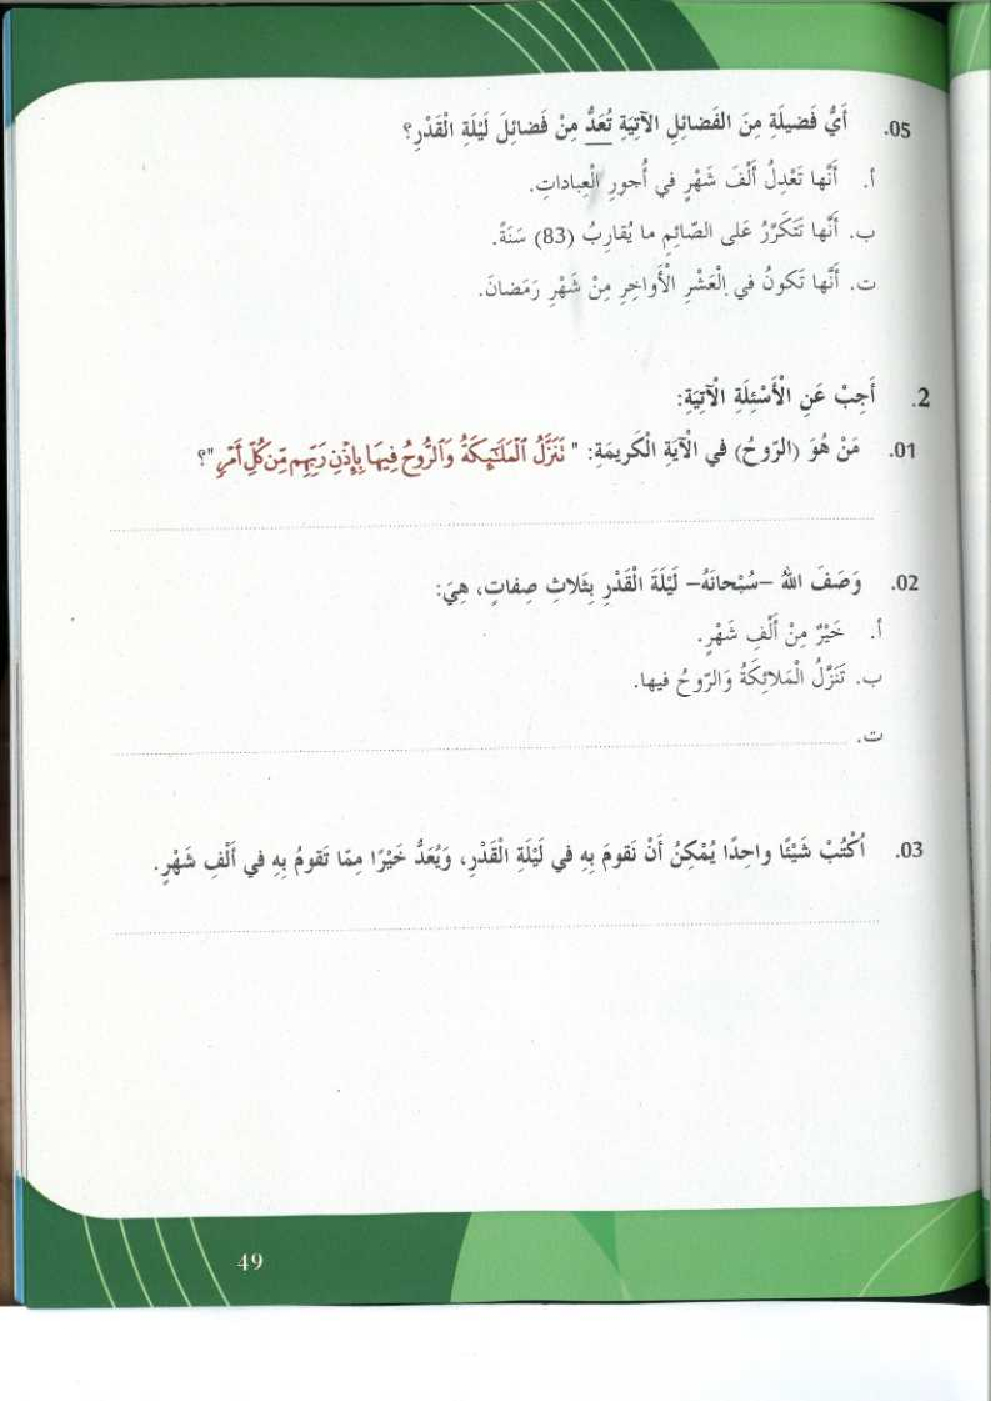 05. أَيُّ فَضيلَةٍ مِنَ الفَضائِلِ الآتِيَةِ تُعَدُّ مِنْ فَضائِلَ لَيْلَةِ الْقَدْرِ؟
أ. أَنَّها تَعْدِلُ أَلْفَ شَهْرٍ في أُجورِ الْعِباداتِ.
ب. أَنَّها تَتَكَرَّرُ عَلى الصّائِمِ ما يُقارِبُ (83) سَنَةً.
ت. أَنَّها تَكونُ في الْعَشْرِ الْأَواخِرِ مِنْ شَهْرِ رَمَضانَ.
2. أَجِبْ عَنِ الْأَسْئِلَةِ الْآتِيَةِ:
01. مَنْ هُوَ (الرّوحُ) في الْآيَةِ الْكَريمَةِ: " تَنَزَّلُ ٱلْمَلَٰٓئِكَةُ وَٱلرُّوحُ فِيهَا بِإِذْنِ رَبِّهِم مِّن كُلِّ أَمْرٍ "؟
02. وَصَفَ اللهُ –سُبْحانَهُ– لَيْلَةَ الْقَدْرِ بِثَلاثِ صِفاتٍ، هِيَ:
أ. خَيْرٌ مِنْ أَلْفِ شَهْرٍ.
ب. تَنَزَّلُ الْمَلائِكَةُ وَالرّوحُ فيها.
ت.
03. اُكْتُبْ شَيْئًا واحِدًا يُمْكِنُ أَنْ نَقومَ بِهِ في لَيْلَةِ الْقَدْرِ، وَيُعَدُّ خَيْرًا مِمّا تَقومُ بِهِ في أَلْفِ شَهْرٍ.
49